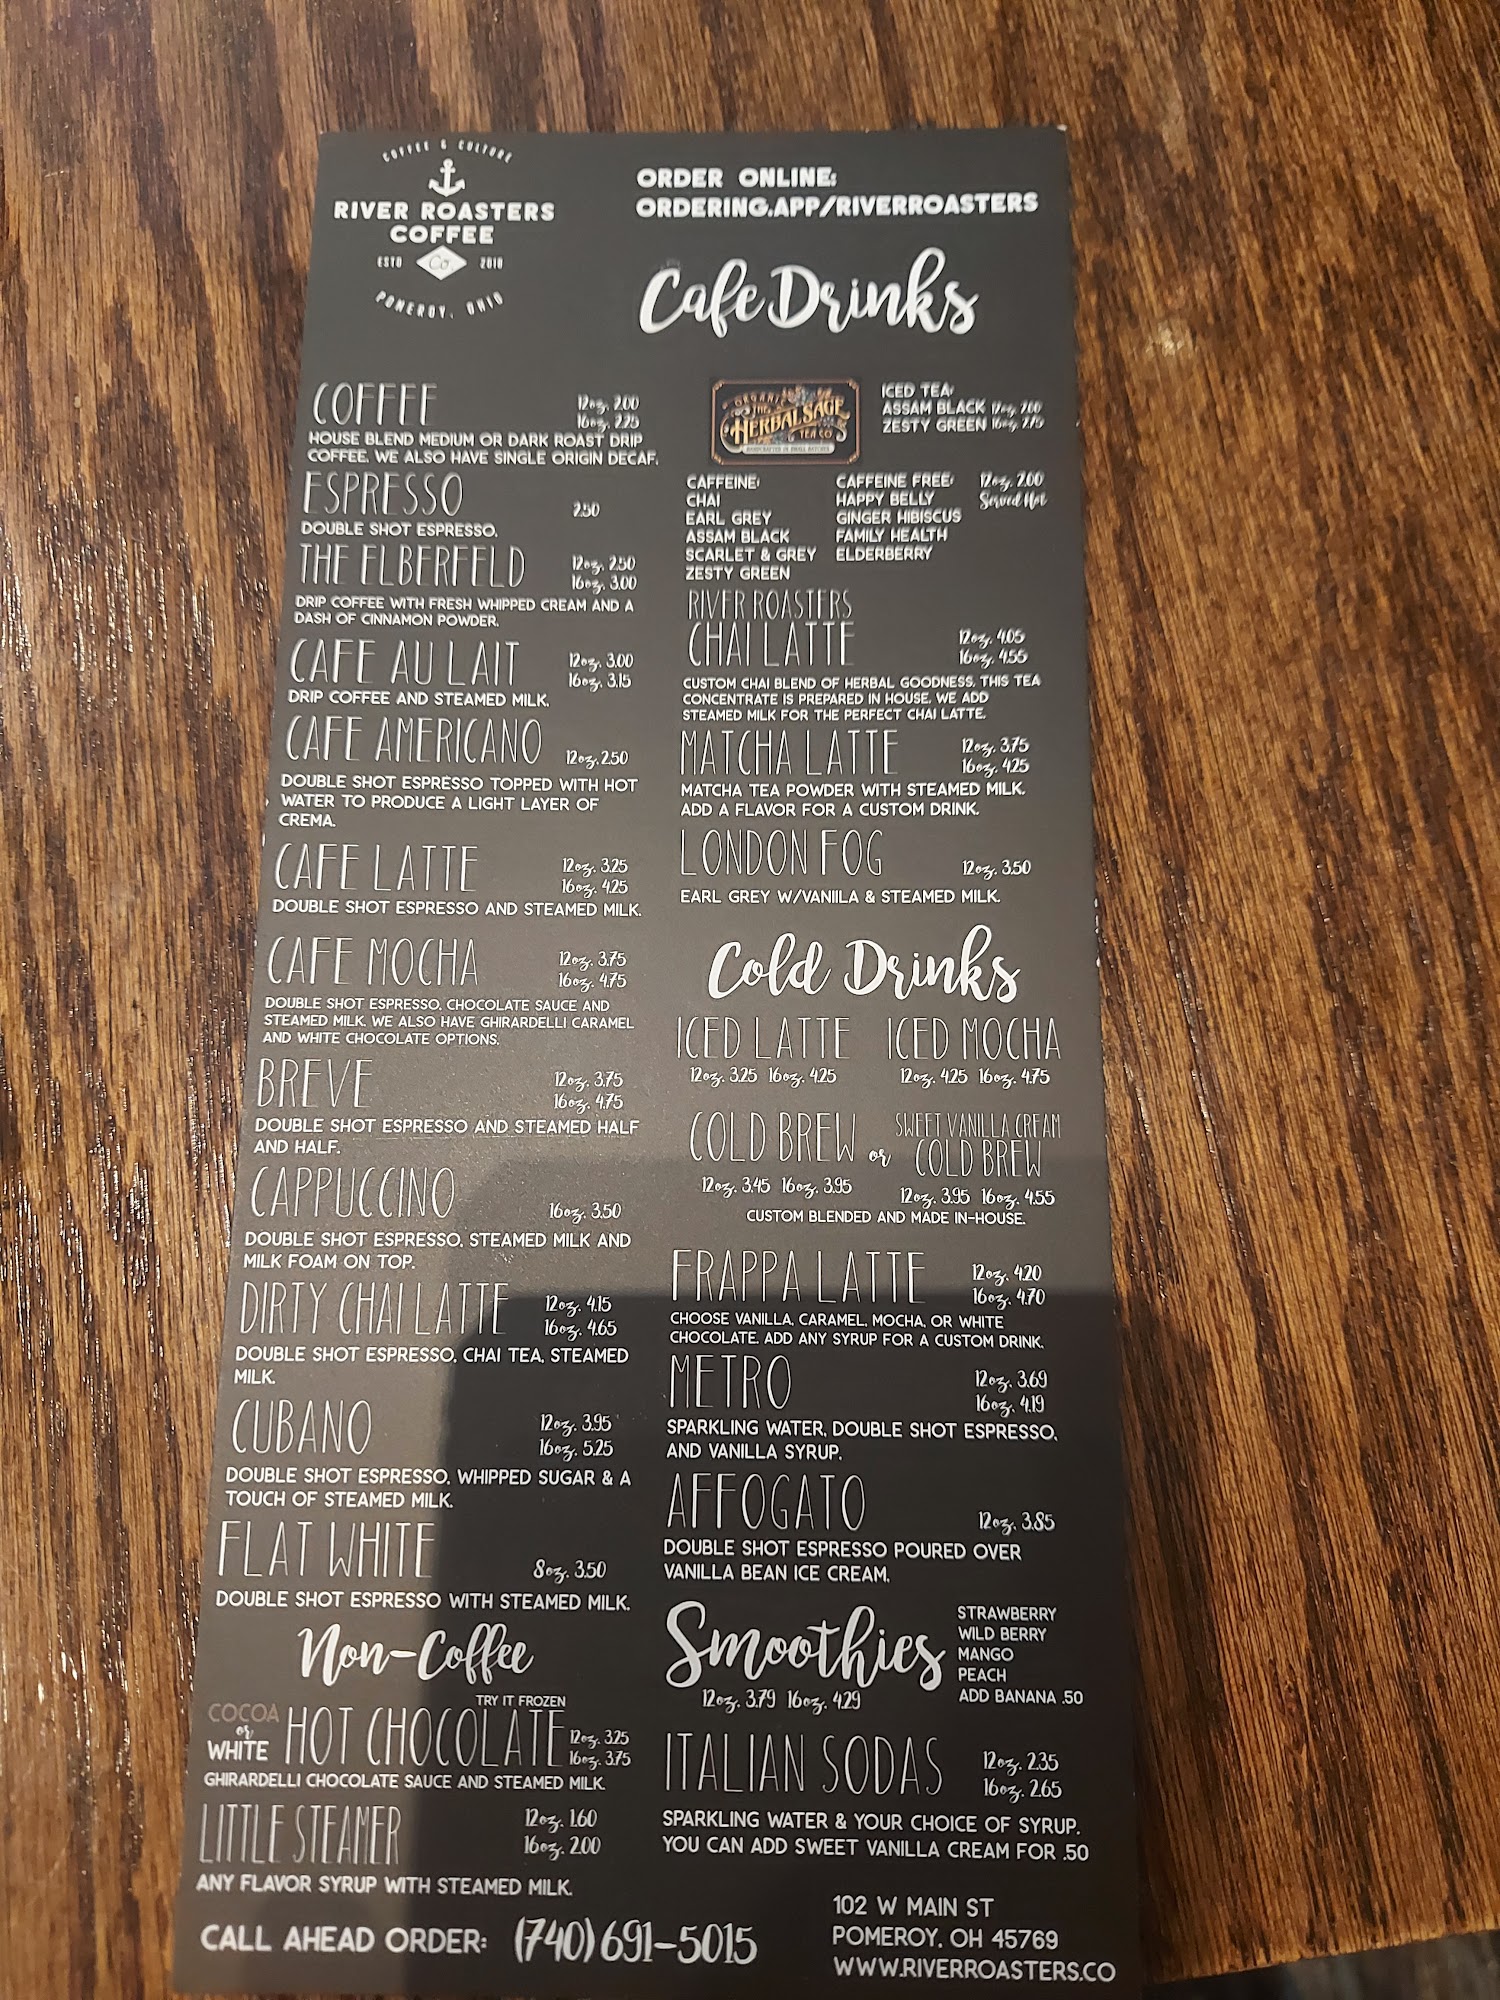 COFFEE & CULTURE
RIVER ROASTERS
COFFEE
ESTD Co. 2018
POMEROY, OHIO
ORDER ONLINE:
ORDERING.APP/RIVERROASTERS
Cafe Drinks
COFFEE
12oz. 2.00
16oz. 2.25
HOUSE BLEND MEDIUM OR DARK ROAST DRIP
COFFEE. WE ALSO HAVE SINGLE ORIGIN DECAF.
ESPRESSO 2.50
DOUBLE SHOT ESPRESSO.
THE ELBERFELD
12oz. 2.50
16oz. 3.00
DRIP COFFEE WITH FRESH WHIPPED CREAM AND A
DASH OF CINNAMON POWDER.
CAFE AU LAIT
12oz. 3.00
16oz. 3.15
DRIP COFFEE AND STEAMED MILK.
CAFE AMERICANO 12oz. 2.50
DOUBLE SHOT ESPRESSO TOPPED WITH HOT
WATER TO PRODUCE A LIGHT LAYER OF
CREMA.
CAFE LATTE
12oz. 3.25
16oz. 4.25
DOUBLE SHOT ESPRESSO AND STEAMED MILK.
CAFE MOCHA
12oz. 3.75
16oz. 4.75
DOUBLE SHOT ESPRESSO, CHOCOLATE SAUCE AND
STEAMED MILK. WE ALSO HAVE GHIRARDELLI CARAMEL
AND WHITE CHOCOLATE OPTIONS.
BREVE
12oz. 3.75
16oz. 4.75
DOUBLE SHOT ESPRESSO AND STEAMED HALF
AND HALF.
CAPPUCCINO 16oz. 3.50
DOUBLE SHOT ESPRESSO, STEAMED MILK AND
MILK FOAM ON TOP.
DIRTY CHAI LATTE
12oz. 4.15
16oz. 4.65
DOUBLE SHOT ESPRESSO, CHAI TEA, STEAMED
MILK.
CUBANO
12oz. 3.95
16oz. 5.25
DOUBLE SHOT ESPRESSO, WHIPPED SUGAR & A
TOUCH OF STEAMED MILK.
FLAT WHITE 8oz. 3.50
DOUBLE SHOT ESPRESSO WITH STEAMED MILK.
Non-Coffee
TRY IT FROZEN
COCOA
or
WHITE
HOT CHOCOLATE
12oz. 3.25
16oz. 3.75
GHIRARDELLI CHOCOLATE SAUCE AND STEAMED MILK
LITTLE STEAMER
12oz. 1.60
16oz. 2.00
ANY FLAVOR SYRUP WITH STEAMED MILK.
ORGANIC
THE
HERBAL SAGE
TEA CO
HANDCRAFTED IN SMALL BATCHES
ICED TEA:
ASSAM BLACK 12oz. 2.00
ZESTY GREEN 16oz. 2.75
CAFFEINE:
CHAI
EARL GREY
ASSAM BLACK
SCARLET & GREY
ZESTY GREEN
CAFFEINE FREE:
HAPPY BELLY
GINGER HIBISCUS
FAMILY HEALTH
ELDERBERRY
12oz. 2.00
Served Hot
RIVER ROASTERS
CHAI LATTE
12oz. 4.05
16oz. 4.55
CUSTOM CHAI BLEND OF HERBAL GOODNESS, THIS TEA
CONCENTRATE IS PREPARED IN HOUSE. WE ADD
STEAMED MILK FOR THE PERFECT CHAI LATTE.
MATCHA LATTE
12oz. 3.75
16oz. 4.25
MATCHA TEA POWDER WITH STEAMED MILK.
ADD A FLAVOR FOR A CUSTOM DRINK.
LONDON FOG 12oz. 3.50
EARL GREY W/VANIILA & STEAMED MILK.
Cold Drinks
ICED LATTE
12oz. 3.25 16oz. 4.25
ICED MOCHA
12oz. 4.25 16oz. 4.75
COLD BREW or
12oz. 3.45 16oz. 3.95
SWEET VANILLA CREAM
COLD BREW
12oz. 3.95 16oz. 4.55
CUSTOM BLENDED AND MADE IN-HOUSE.
FRAPPA LATTE
12oz. 4.20
16oz. 4.70
CHOOSE VANILLA, CARAMEL, MOCHA, OR WHITE
CHOCOLATE. ADD ANY SYRUP FOR A CUSTOM DRINK.
METRO
12oz. 3.69
16oz. 4.19
SPARKLING WATER, DOUBLE SHOT ESPRESSO,
AND VANILLA SYRUP.
AFFOGATO 12oz. 3.85
DOUBLE SHOT ESPRESSO POURED OVER
VANILLA BEAN ICE CREAM.
Smoothies
12oz. 3.79 16oz. 4.29
STRAWBERRY
WILD BERRY
MANGO
PEACH
ADD BANANA .50
ITALIAN SODAS
12oz. 2.35
16oz. 2.65
SPARKLING WATER & YOUR CHOICE OF SYRUP.
YOU CAN ADD SWEET VANILLA CREAM FOR .50
CALL AHEAD ORDER: (740) 691-5015
102 W MAIN ST
POMEROY, OH 45769
WWW.RIVERROASTERS.CO